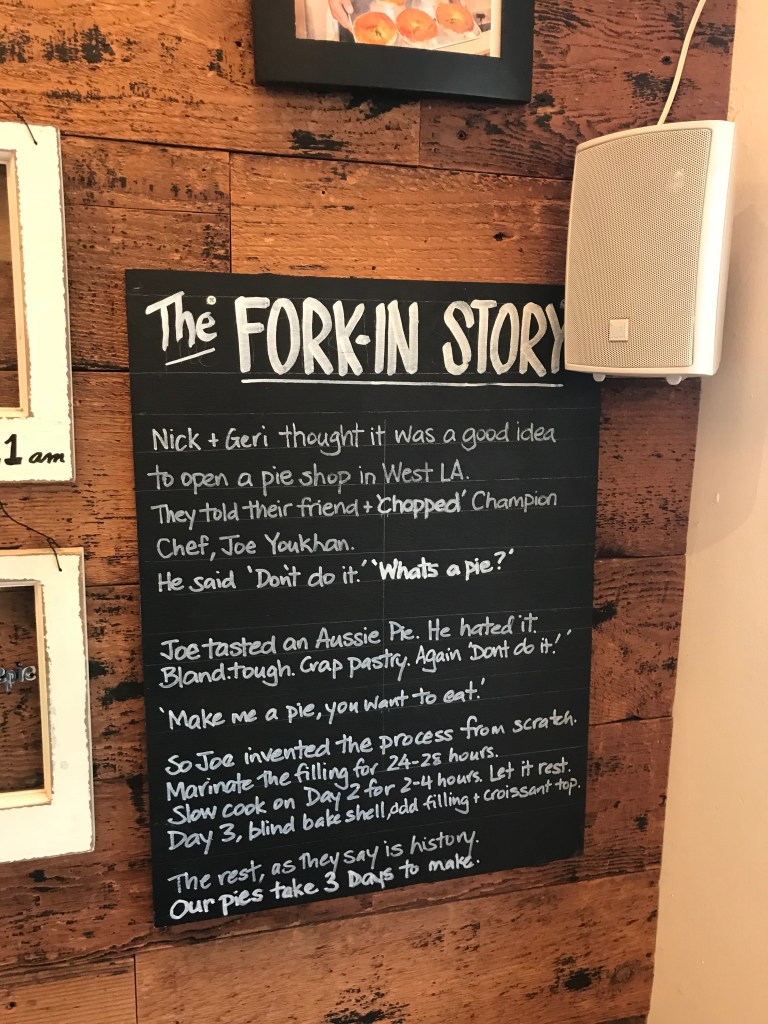 The FORK-IN STORY
Nick + Geri thought it was a good idea
to open a pie shop in West LA.
They told their friend + 'Chopped' Champion
Chef, Joe Youkhan.
He said 'Don't do it.' 'Whats a pie?'
Joe tasted an Aussie Pie. He hated it.
Bland.tough. Crap pastry. Again 'Dont do it!'
'Make me a pie, you want to eat.'
So Joe invented the process from scratch.
Marinate the filling for 24-28 hours.
Slow cook on Day 2 for 2-4 hours. Let it rest.
Day 3, blind bake shell, add filling + croissant top.
The rest, as they say is history.
Our pies take 3 Days to make.
1 am